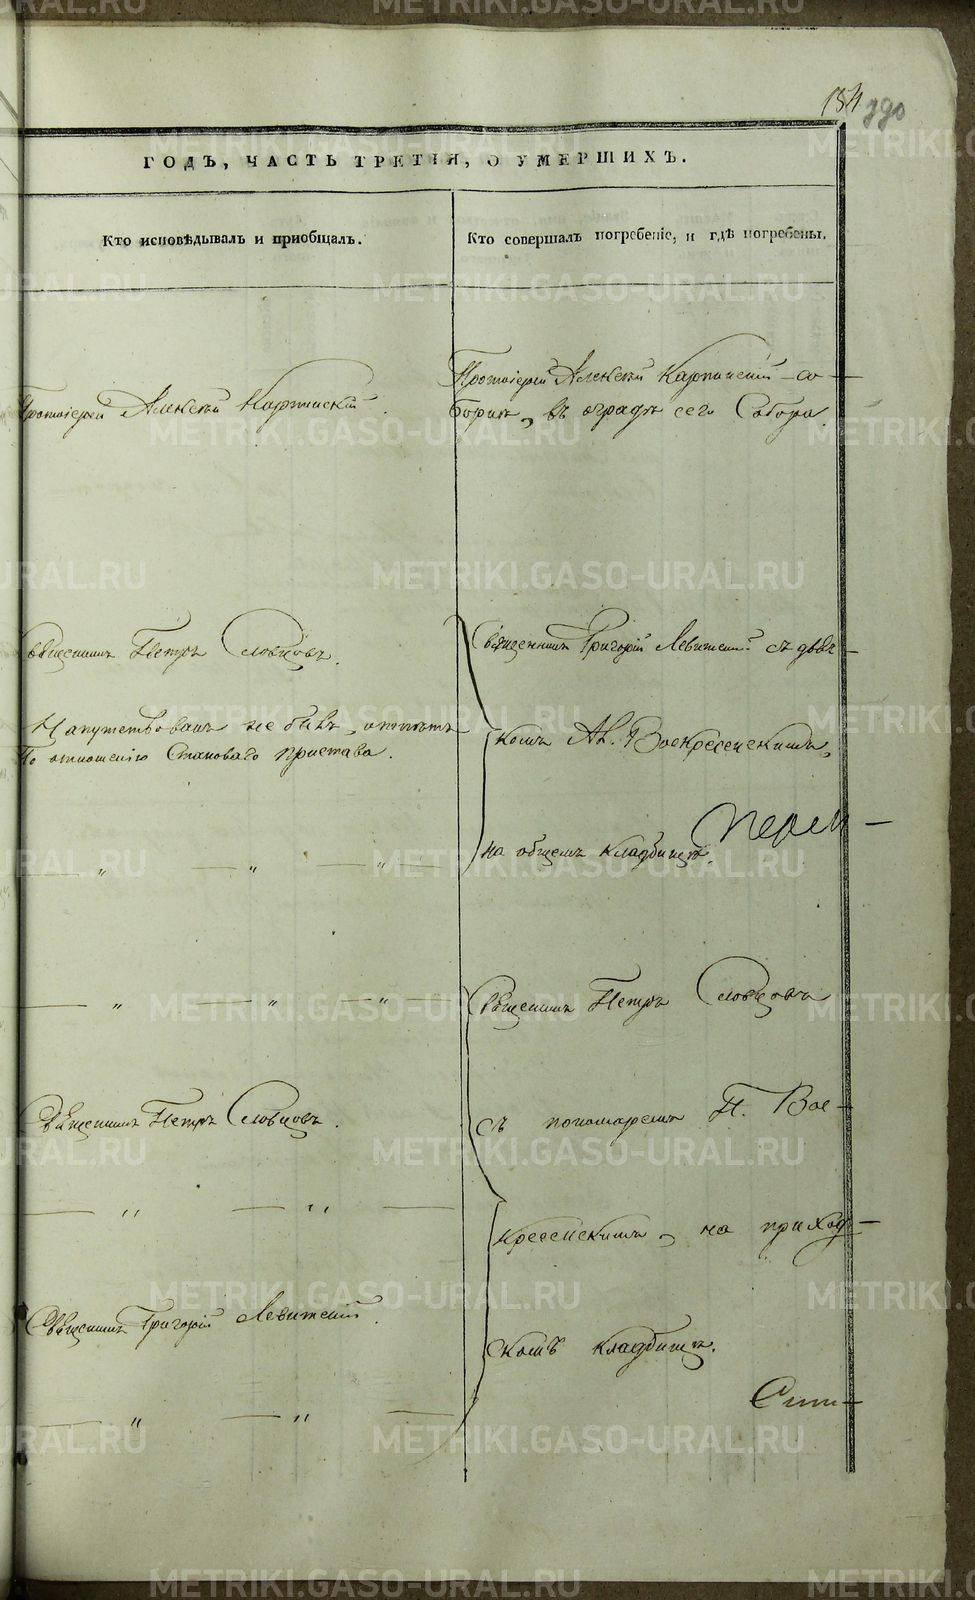 184 790
ГОДЪ, ЧАСТЬ ТРЕТІЯ, О УМЕРШИХЪ.
Кто исповѣдывалъ и пріобщалъ.
Кто совершалъ погребеніе, и гдѣ погребены.
Протоіерей Алексѣй Карпинскій
Протоіерей Алексѣй Карпинскій со-
боромъ, въ оградѣ сего Собора.
Священникъ Петръ Словцовъ.
Священникъ Григорій Левитскій съ дьяч-
Напутствованъ не былъ, отпѣтъ
по отношенію Становаго пристава.
комъ Ал. Воскресенскимъ,
на общемъ кладбищѣ.
— „ — „ — „ —
— „ — „ — „ —
Священникъ Петръ Словцовъ
Священникъ Петръ Словцовъ.
съ пономаремъ П. Вос-
— „ — „ —
кресенскимъ, на приход-
Священникъ Григорій Левитскій
скомъ кладбищѣ.
— „ — „ —
METRIKI.GASO-URAL.RU